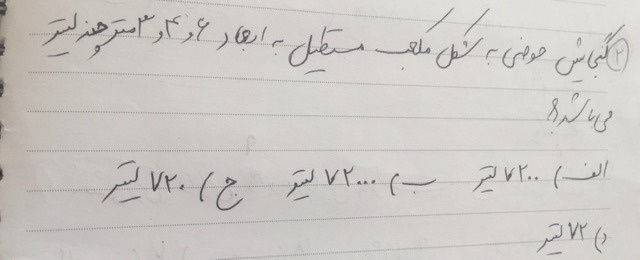 ۲) گنجایش حوضی به شکل مکعب مستطیل به ابعاد ۶ و ۴ و ۳ متر چند لیتر
می باشد؟
الف) ۷۲۰۰ لیتر ب) ۷۲۰۰۰ لیتر ج) ۷۲۰ لیتر
د) ۷۲ لیتر